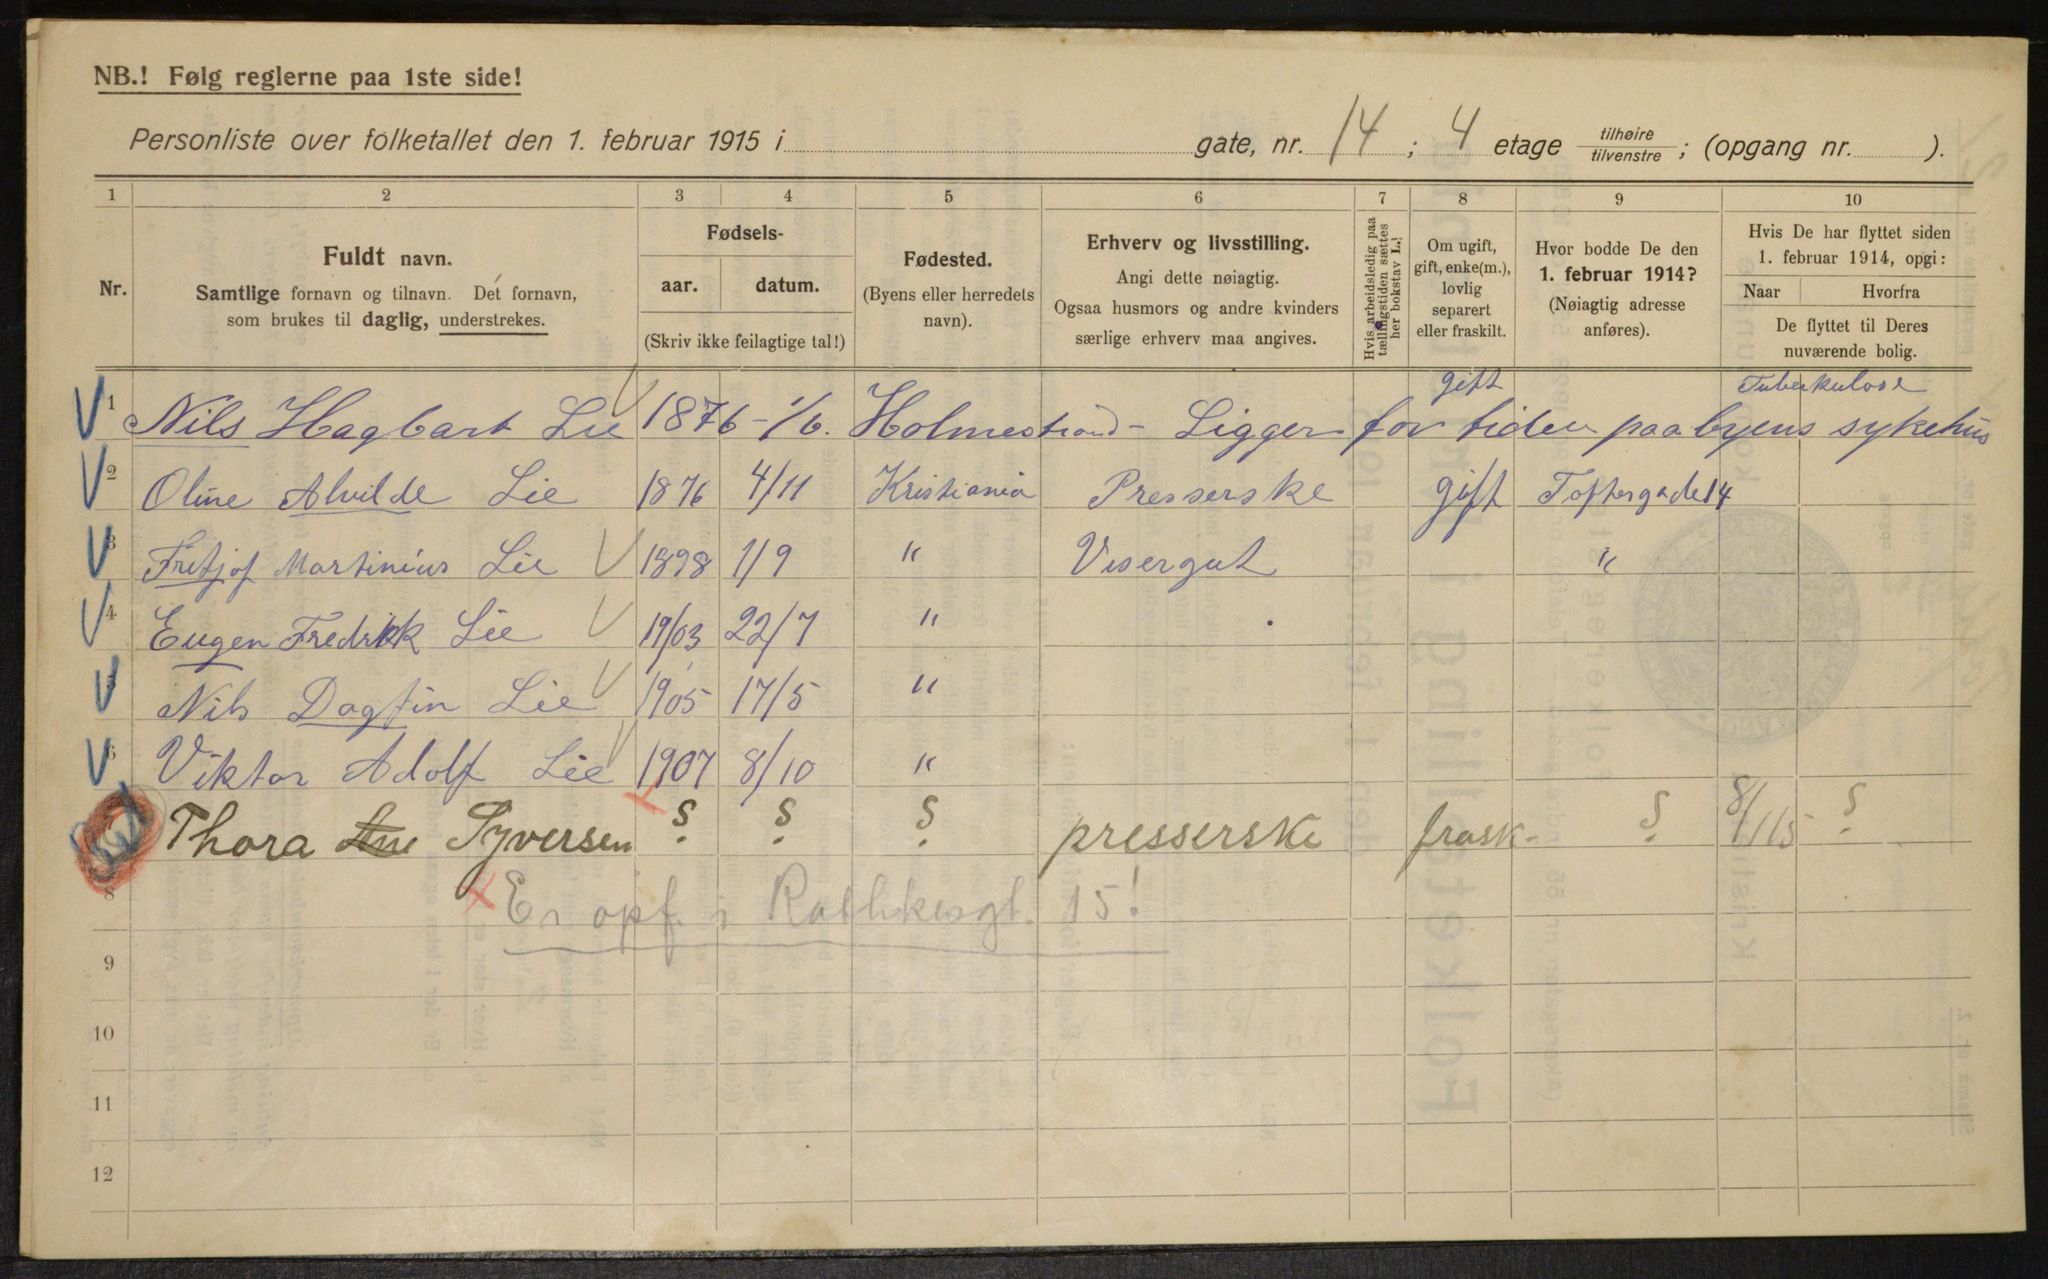 NB.! Følg reglerne paa 1ste side!
Personliste over folketallet den 1. februar 1915 i gate, nr. 14; 4 etage tilhøire/tilvenstre; (opgang nr. ).
1 2 3 4 5 6 7 8 9 10
Nr.
Fuldt navn.
Samtlige fornavn og tilnavn. Det fornavn,
som brukes til daglig, understrekes.
Fødsels-
aar. datum.
(Skriv ikke feilagtige tal!)
Fødested.
(Byens eller herredets
navn).
Erhverv og livsstilling.
Angi dette nøiagtig.
Ogsaa husmors og andre kvinders
særlige erhverv maa angives.
Hvis arbeidsledig paa
tællingstiden sættes
her bokstav L.
Om ugift,
gift, enke(m.),
lovlig
separert
eller fraskilt.
Hvor bodde De den
1. februar 1914?
(Nøiagtig adresse
anføres).
Hvis De har flyttet siden
1. februar 1914, opgi:
Naar Hvorfra
De flyttet til Deres
nuværende bolig.
gift Tuberkulose
1 Nils Hagbart Lie 1876 - 1/6. Holmestrand - Ligger for tiden paa byens sykehus
2 Oline Alvilde Lie 1876 4/11 Kristiania Presserske gift Toftesgade 14
3 Fritjof Martinius Lie 1898 1/9 " Visergut "
4 Eugen Fredrik Lie 19/03 22/7 "
5 Nils Dagfin Lie 1905 17/5 "
6 Viktor Adolf Lie 1907 8/10 "
Thora Syversen ? ? ? presserske frask- ? 8/1 15 ?
8 Er opf. i Rathkesgt. 15!
9
10
11
12